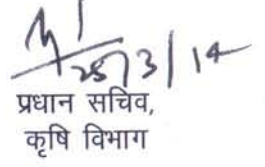 25/3/14
प्रधान सचिव,
कृषि विभाग